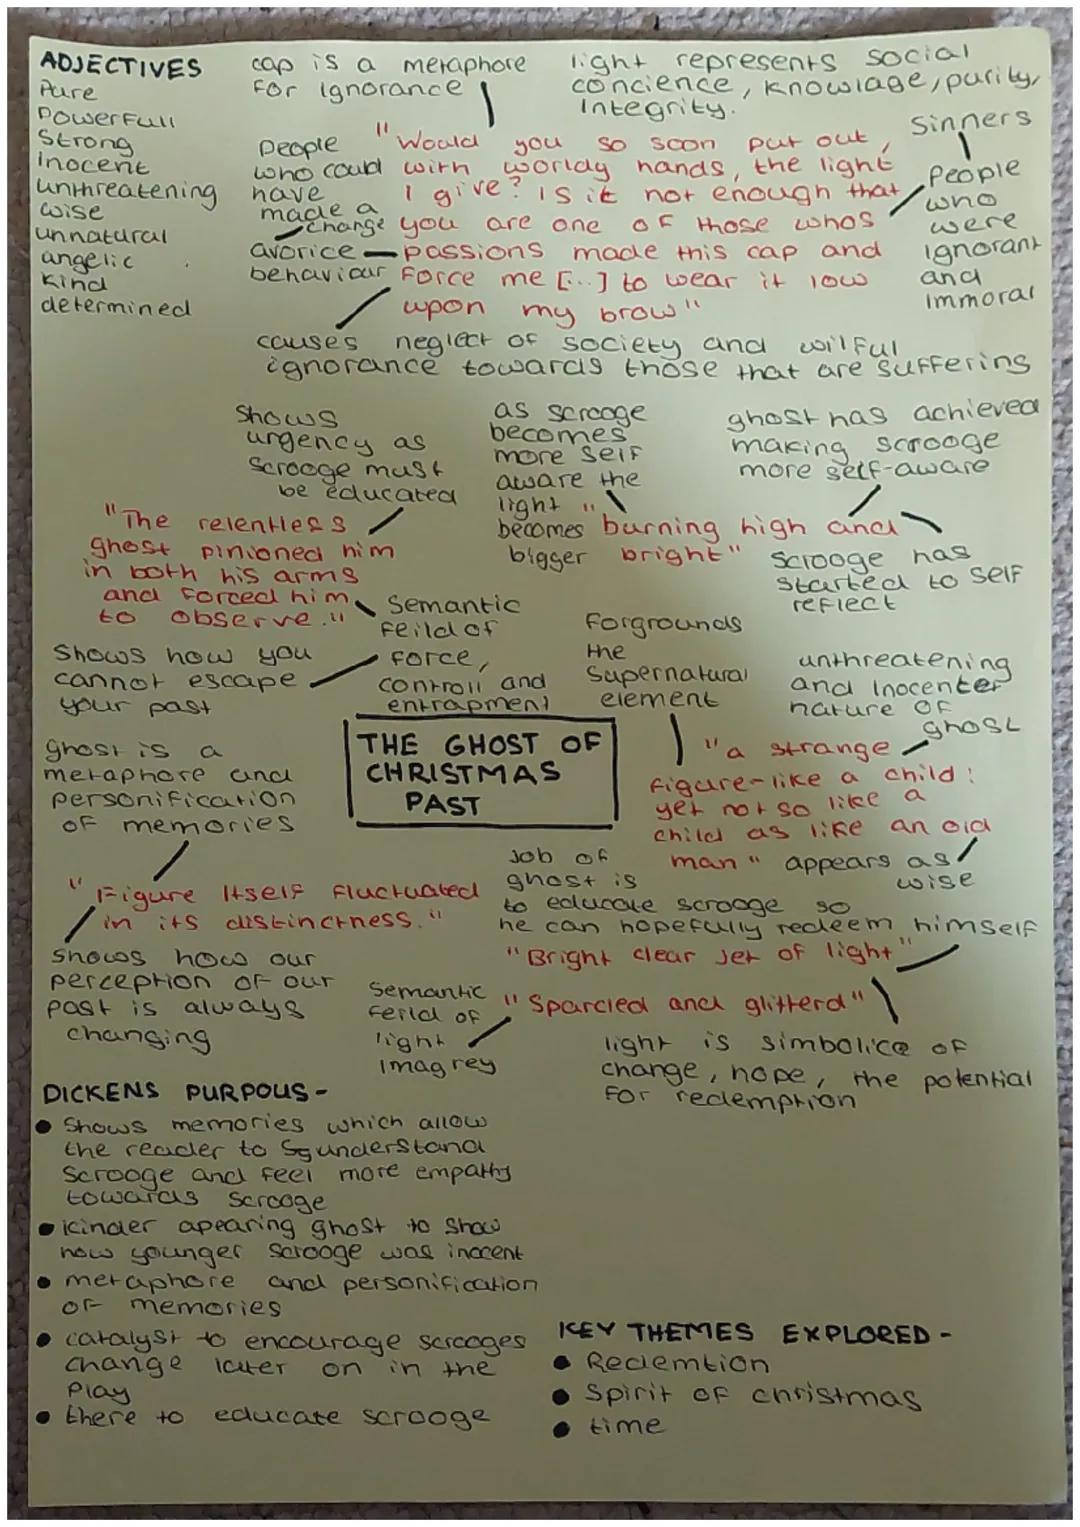 ADJECTIVES
Pure
Powerfull
Strong
inocent
unthreatening
wise
unnatural
angelic
kind
determined
cap is a metaphore
for ignorance
light represents social
concience, knowlage, purity,
integrity.
People
who could
have
made a
change
avorice
behaviour
"Would you so soon put out,
with worldy hands, the light
I give? Is it not enough that
you are one of those whos
passions made this cap and
force me [...] to wear it low
upon my brow"
Sinners
People
who
were
ignorant
and
immoral
causes neglect of society and wilful
ignorance towards those that are suffering
Shows
urgency as
Scrooge must
be educated
as scrooge
becomes
more self
aware the
light
becomes
bigger
ghost has achieved
making scrooge
more self-aware
"The relentless
ghost pinioned him
in both his arms
and forced him
to observe."
"burning high and
bright"
Scrooge has
started to self
reflect
Semantic
feild of
force,
controll and
entrapment
Shows how you
cannot escape
your past
Forgrounds
the
Supernatural
element
unthreatening
and inocenter
nature of
ghost
THE GHOST OF
CHRISTMAS
PAST
ghost is a
metaphore and
personification
of memories
"a strange
figure-like a child:
yet not so like a
child as like an old
man"
appears as
wise
"Figure itself fluctuated
in its distinctness."
Job of
ghost is
to educate scrooge so
he can hopefully redeem himself
"Bright clear jet of light"
Shows how our
perception of our
past is always
changing
Semantic
feild of
light
imagrey
"Sparcled and glitterd"
light is simbolice of
change, hope, the potential
for redemption
DICKENS PURPOUS-
• Shows memories which allow
the reader to understand
Scrooge and feel more empathy
towards scrooge
• kinder apearing ghost to show
how younger scrooge was inocent
• metaphore and personification
of memories
• catalyst to encourage scrooges
change later on in the
play
• there to educate scrooge
KEY THEMES EXPLORED-
• Redemtion
• Spirit of christmas
• time